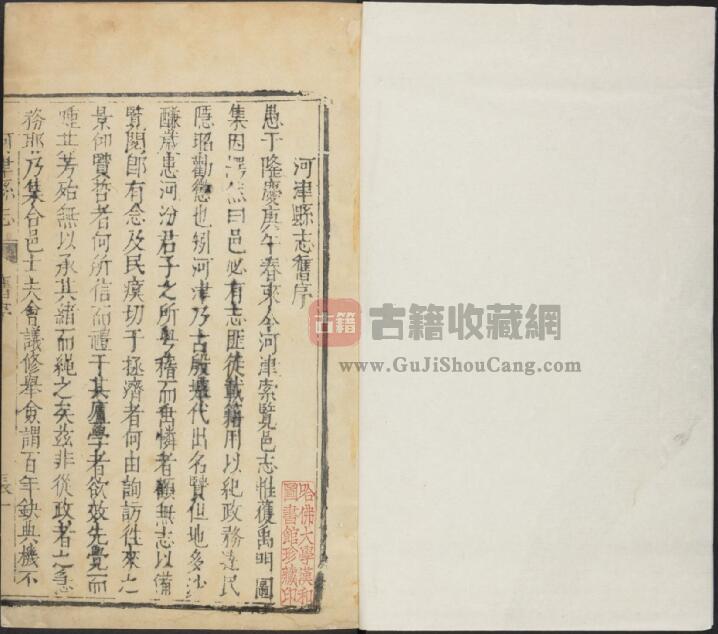 河津縣志舊序
愚于隆慶庚午春來令河津索覽邑志惟復禹明圖
集因愕然曰邑必有志匪徒載籍用以紀政務達民
隱昭勸懲也矧河津乃古殷墟代出名賢但地多沙
鹻歲患河汾君子之所興稽而為憐者顧無志以備
覽閱卽有念及民瘼切于拯濟者何由詢訪往來之
景仰賢哲者何所信而禮于其廬學者欲效先覺而
踵其芳殆無以承其緒而繩之矣茲非從政者之急
務耶乃集合邑士夫會議修舉僉謂百年缺典機不
河津縣志 舊序
古籍 古籍收藏網
www.GuJiShouCang.com
哈佛大學漢和
圖書館珍藏印